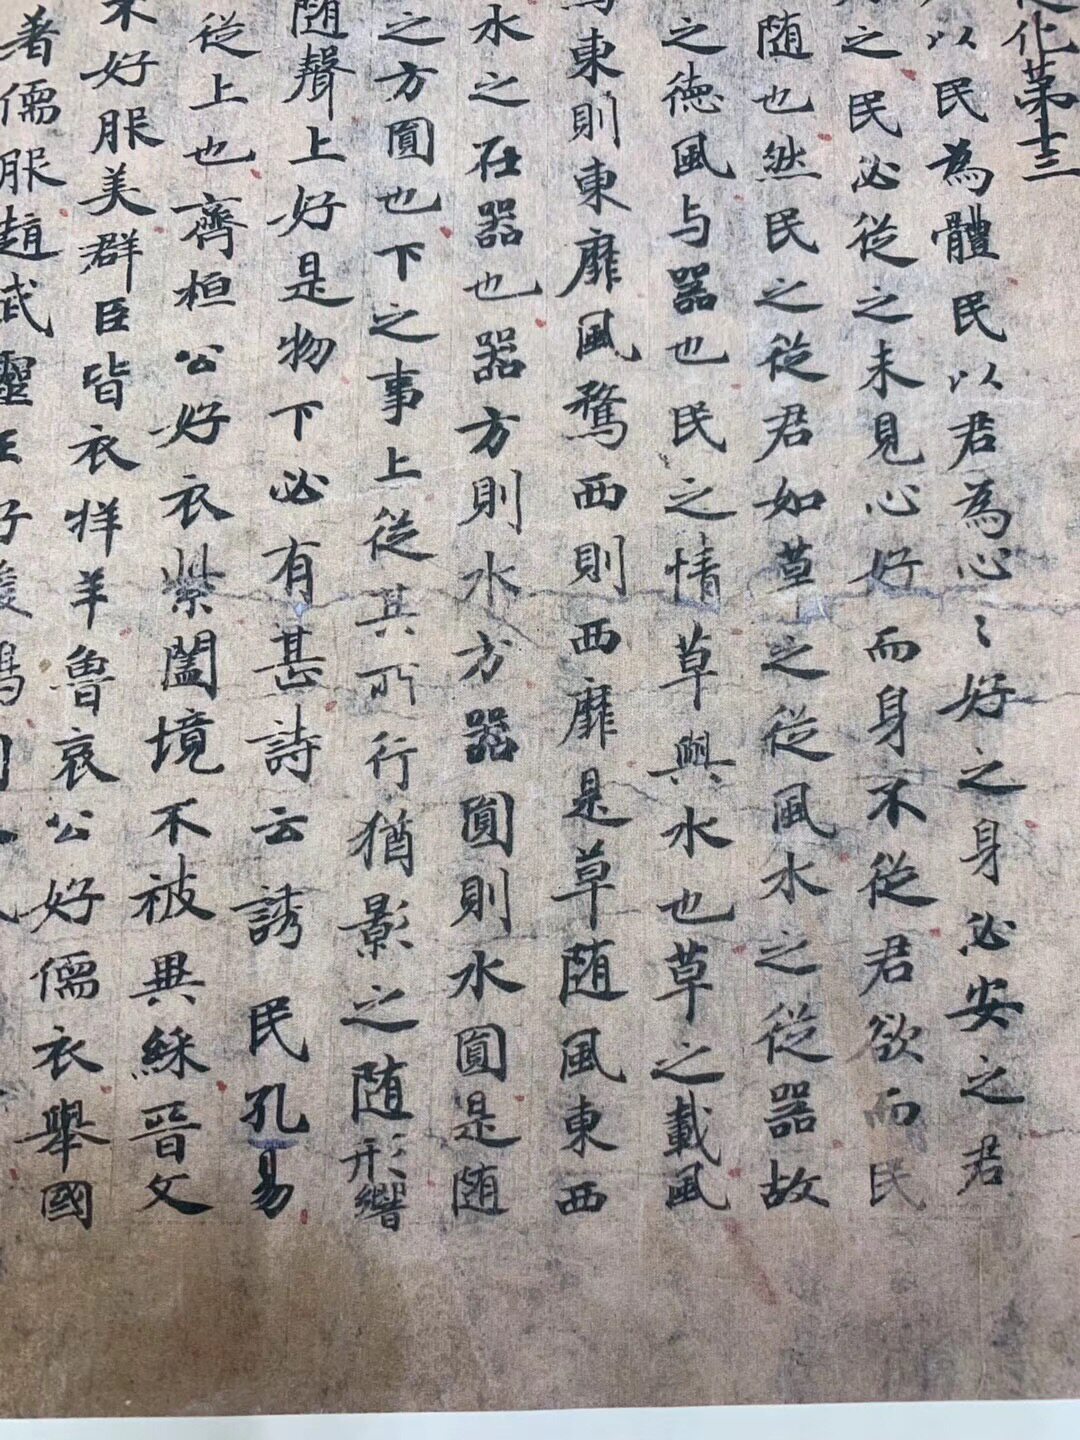 化苐十三
以民為體民以君為心〻好之身必安之君
之民必從之未見心好而身不從君欲而民
随也然民之從君如草之從風水之從器故
之德風与器也民之情草與水也草之載風
東則東靡風鶩西則西靡是草随風東西
水之在器也器方則水方器圎則水圎是随
之方圎也下之事上從其所行猶影之随形響
随聲上好是物下必有甚詩云誘民孔易
從上也齊桓公好衣紫闔境不被異綵晉文
不好服美群臣皆衣牂羊魯哀公好儒衣舉國
著儒服趙武靈王好